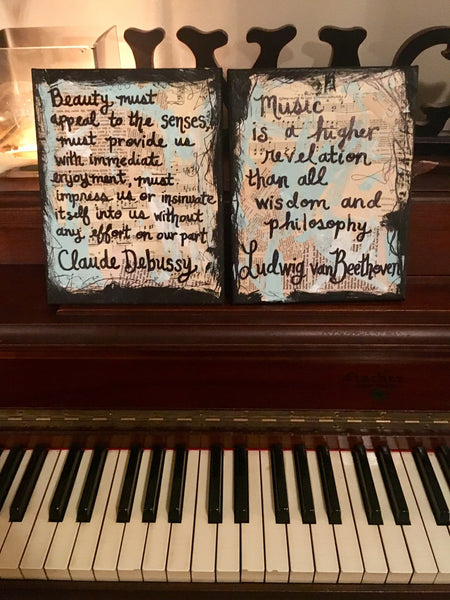 Beauty must
appeal to the senses,
must provide us
with immediate
enjoyment, must
impress us or insinuate
itself into us without
any effort on our part
Claude Debussy
Music
is a higher
revelation
than all
wisdom and
philosophy
Ludwig van Beethoven